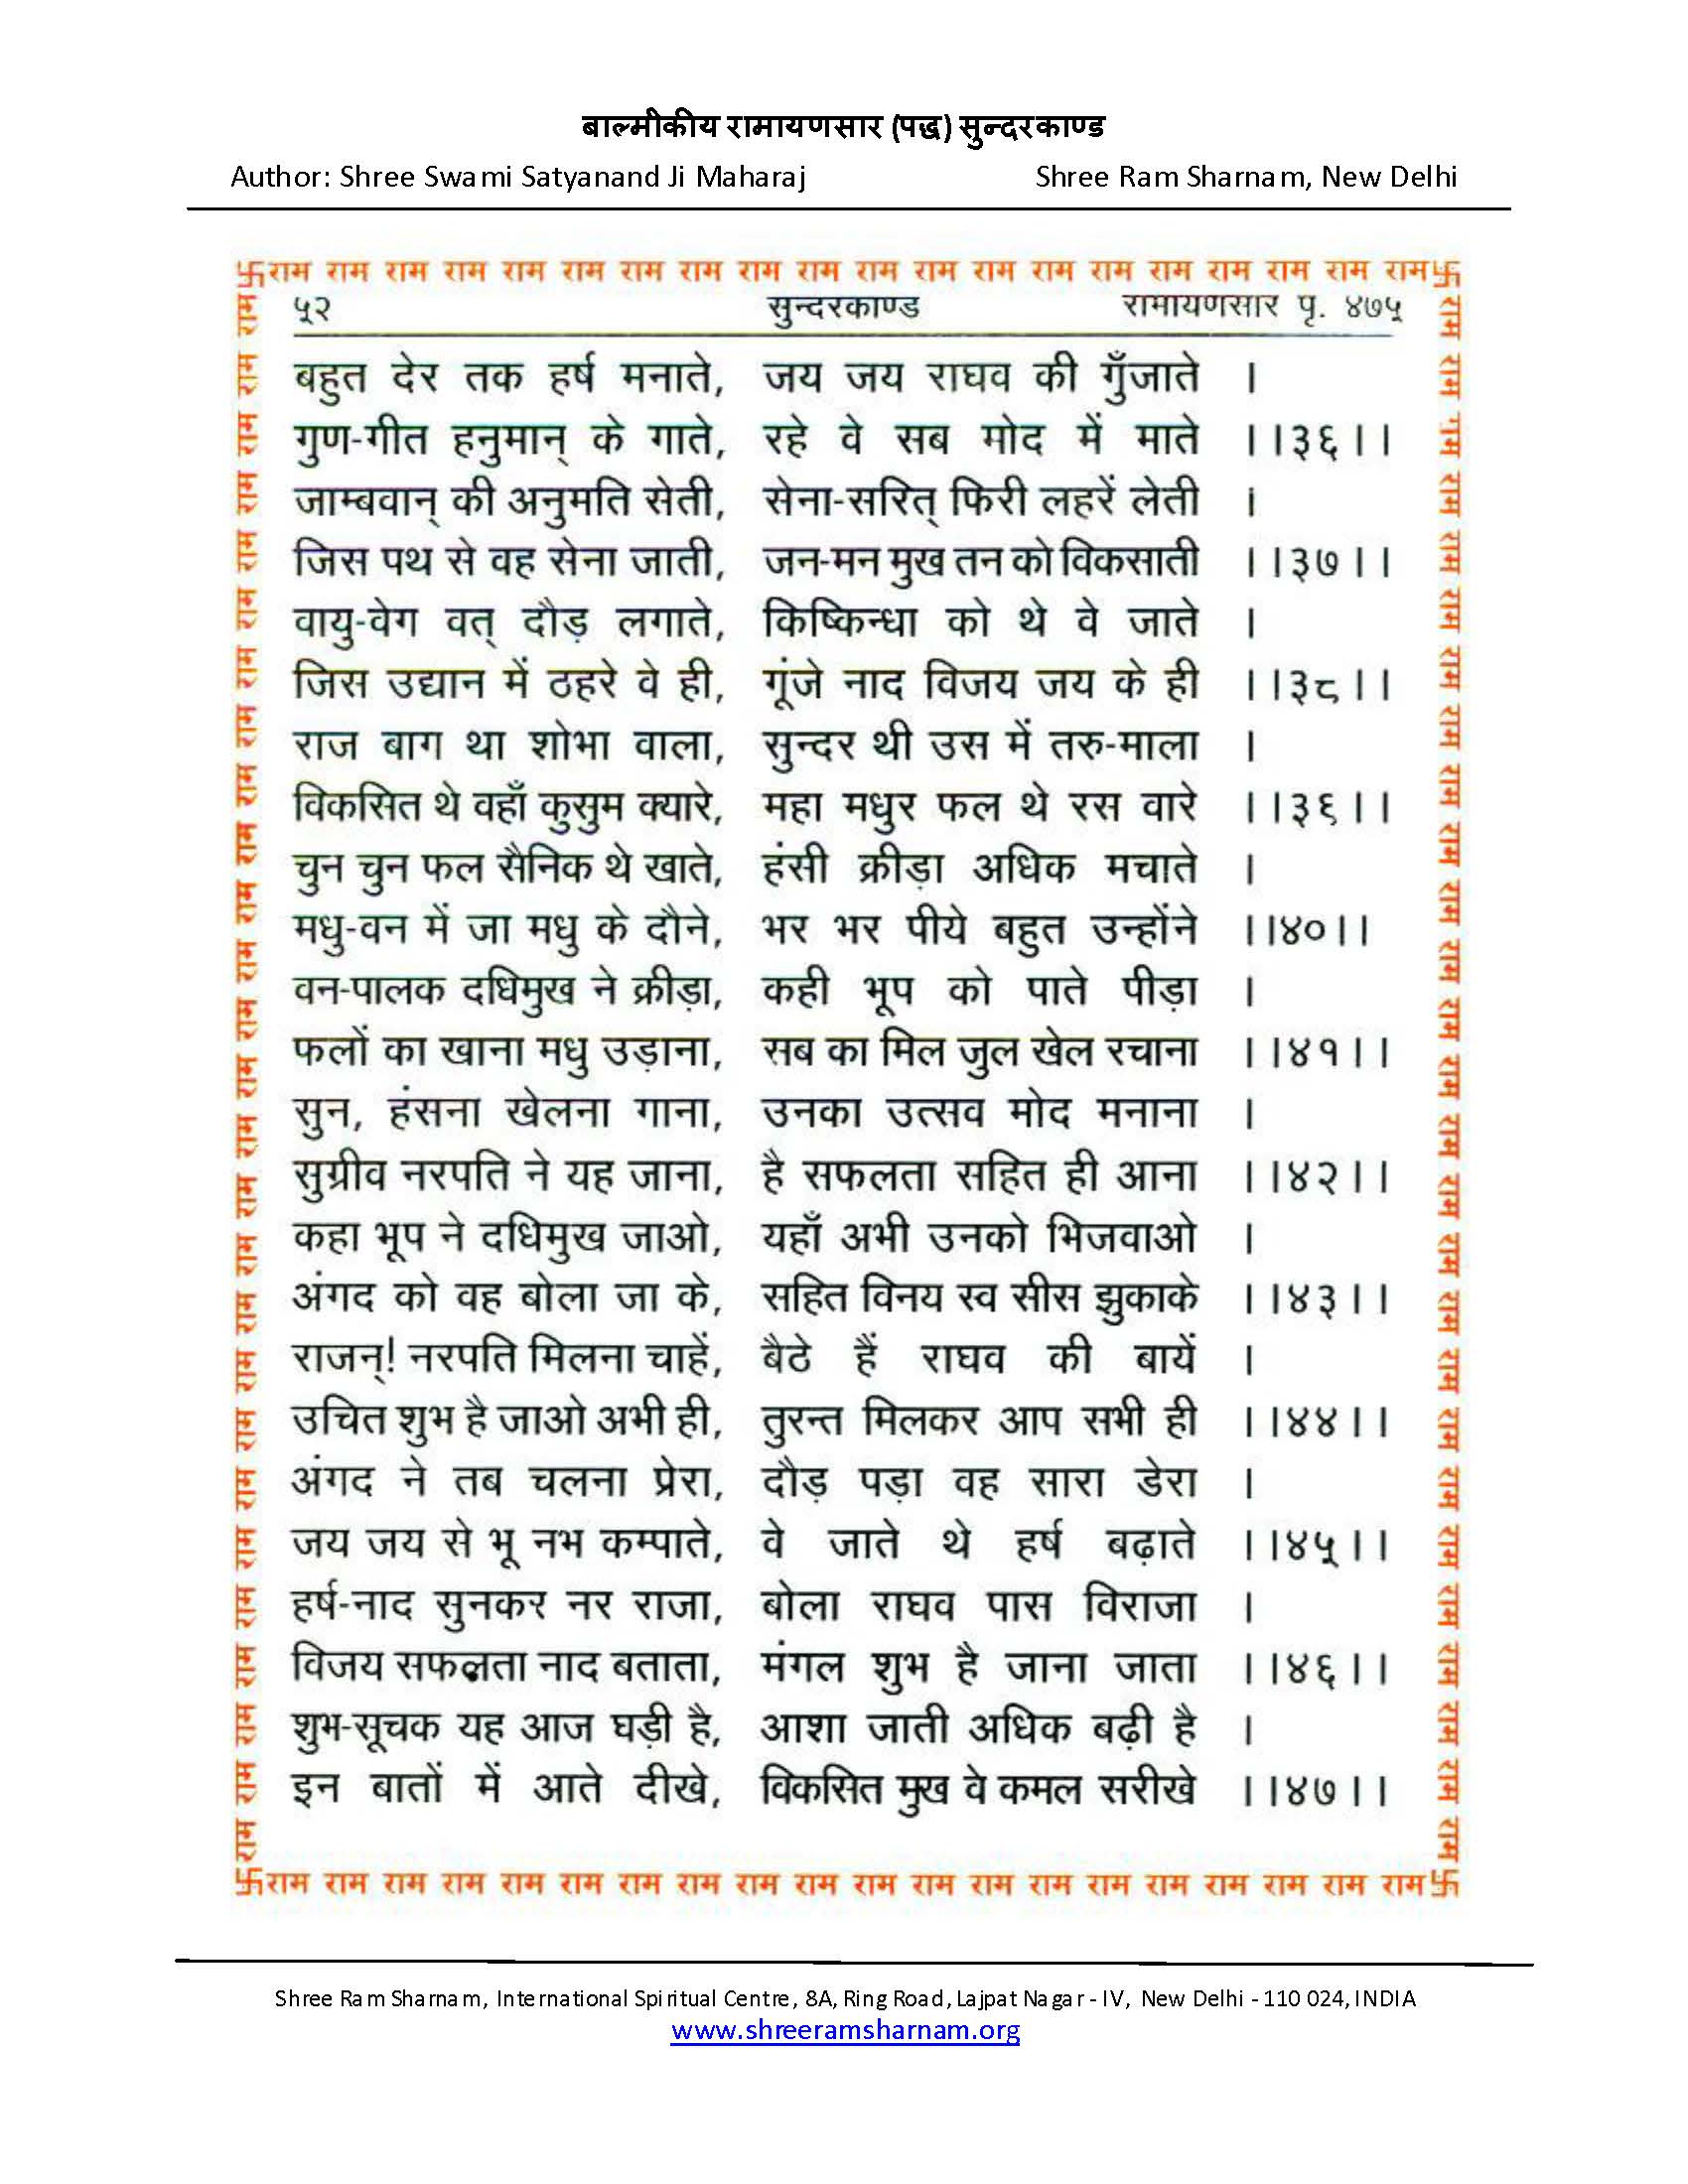 बाल्मीकीय रामायणसार (पद्ध) सुन्दरकाण्ड
Author: Shree Swami Satyanand Ji Maharaj Shree Ram Sharnam, New Delhi
卐राम राम राम राम राम राम राम राम राम राम राम राम राम राम राम राम राम राम राम राम卐
५२ सुन्दरकाण्ड रामायणसार पृ. ४७५
बहुत देर तक हर्ष मनाते, जय जय राघव की गुँजाते ।
गुण-गीत हनुमान् के गाते, रहे वे सब मोद में माते ।।३६।।
जाम्बवान् की अनुमति सेती, सेना-सरित् फिरी लहरें लेती ।
जिस पथ से वह सेना जाती, जन-मन मुख तन को विकसाती ।।३७।।
वायु-वेग वत् दौड़ लगाते, किष्किन्धा को थे वे जाते ।
जिस उद्यान में ठहरे वे ही, गूंजे नाद विजय जय के ही ।।३८।।
राज बाग था शोभा वाला, सुन्दर थी उस में तरु-माला ।
विकसित थे वहाँ कुसुम क्यारे, महा मधुर फल थे रस वारे ।।३९।।
चुन चुन फल सैनिक थे खाते, हंसी क्रीड़ा अधिक मचाते ।
मधु-वन में जा मधु के दौने, भर भर पीये बहुत उन्होंने ।।४०।।
वन-पालक दधिमुख ने क्रीड़ा, कही भूप को पाते पीड़ा ।
फलों का खाना मधु उड़ाना, सब का मिल जुल खेल रचाना ।।४१।।
सुन, हंसना खेलना गाना, उनका उत्सव मोद मनाना ।
सुग्रीव नरपति ने यह जाना, है सफलता सहित ही आना ।।४२।।
कहा भूप ने दधिमुख जाओ, यहाँ अभी उनको भिजवाओ ।
अंगद को वह बोला जा के, सहित विनय स्व सीस झुकाके ।।४३।।
राजन्! नरपति मिलना चाहें, बैठे हैं राघव की बायें ।
उचित शुभ है जाओ अभी ही, तुरन्त मिलकर आप सभी ही ।।४४।।
अंगद ने तब चलना प्रेरा, दौड़ पड़ा वह सारा डेरा ।
जय जय से भू नभ कम्पाते, वे जाते थे हर्ष बढ़ाते ।।४५।।
हर्ष-नाद सुनकर नर राजा, बोला राघव पास विराजा ।
विजय सफलता नाद बताता, मंगल शुभ है जाना जाता ।।४६।।
शुभ-सूचक यह आज घड़ी है, आशा जाती अधिक बढ़ी है ।
इन बातों में आते दीखे, विकसित मुख वे कमल सरीखे ।।४७।।
卐राम राम राम राम राम राम राम राम राम राम राम राम राम राम राम राम राम राम राम राम卐
Shree Ram Sharnam, International Spiritual Centre, 8A, Ring Road, Lajpat Nagar - IV, New Delhi - 110 024, INDIA
www.shreeramsharnam.org